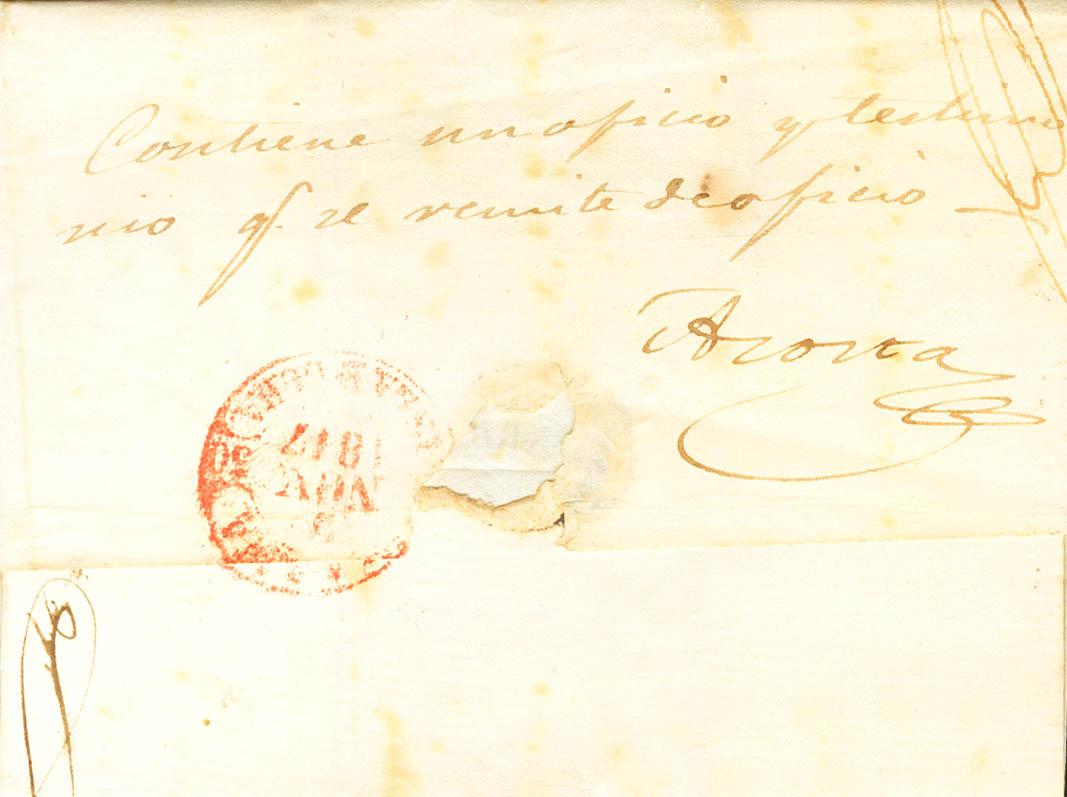 Contiene un oficio y testimo
nio q.e se remite de oficio
Acosta